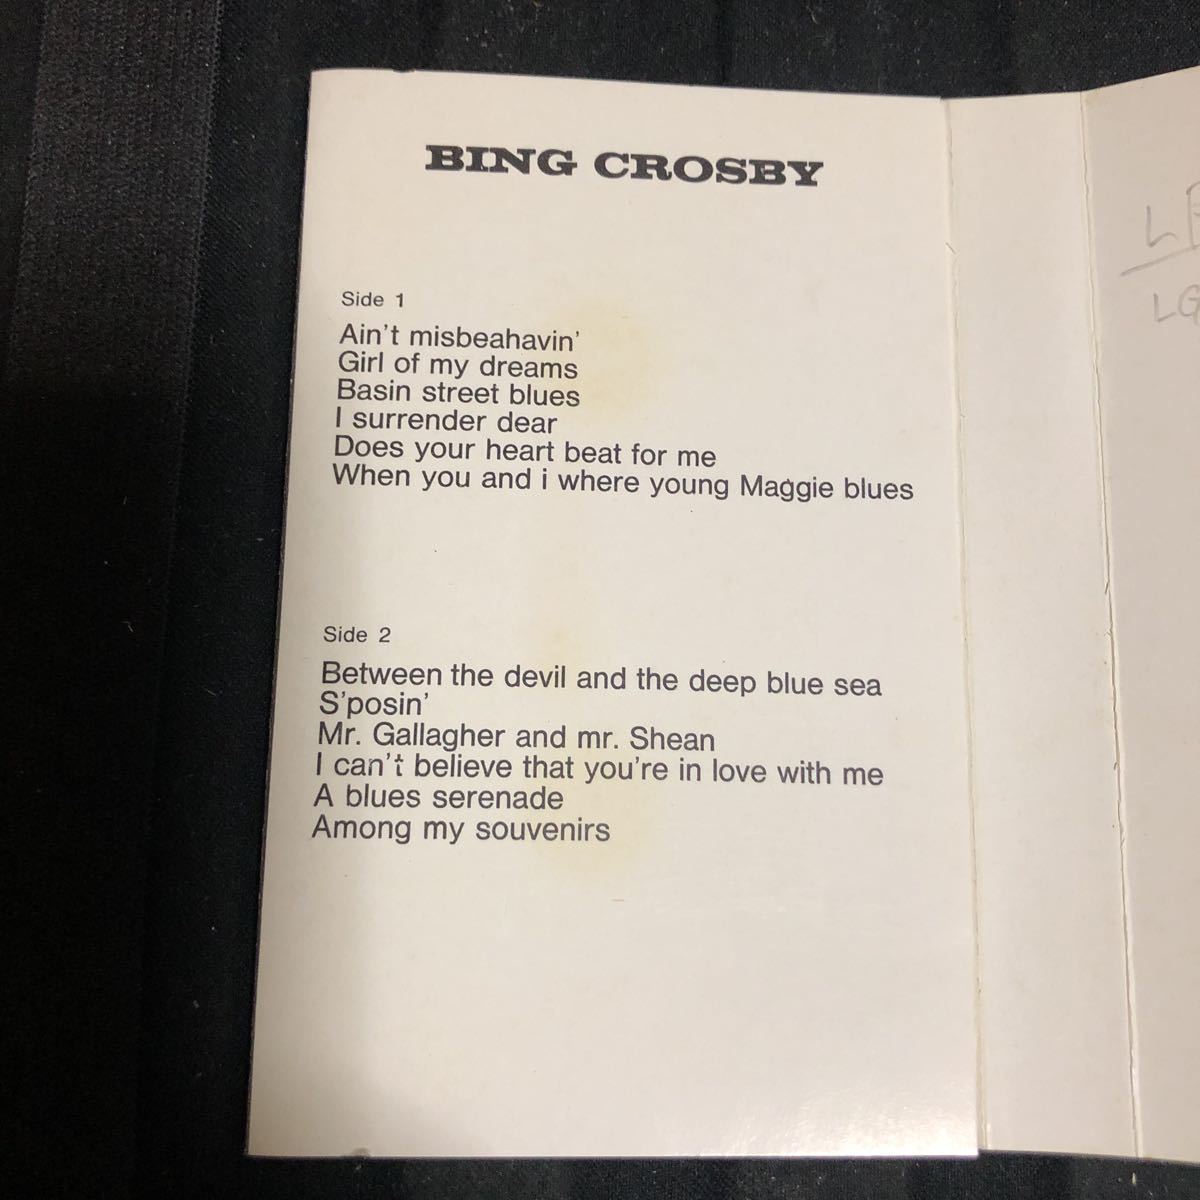 BING CROSBY
Side 1
Ain't misbeahavin'
Girl of my dreams
Basin street blues
I surrender dear
Does your heart beat for me
When you and i where young Maggie blues
Side 2
Between the devil and the deep blue sea
S'posin'
Mr. Gallagher and mr. Shean
I can't believe that you're in love with me
A blues serenade
Among my souvenirs